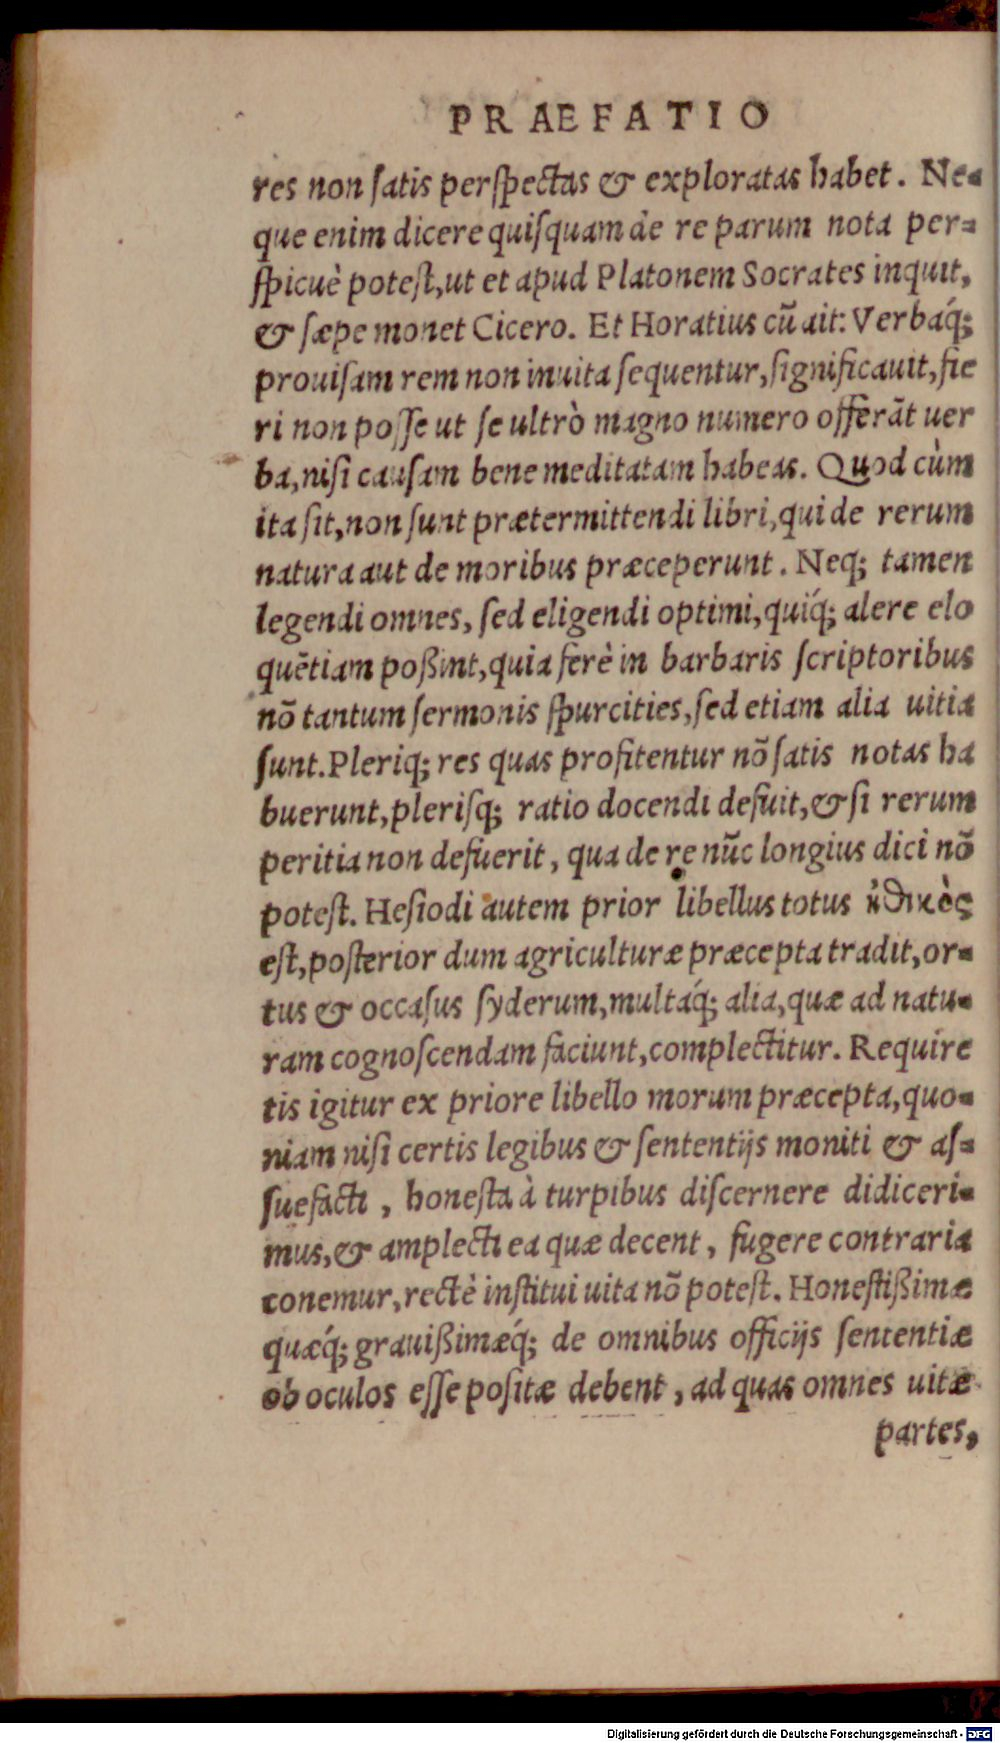 PRAEFATIO
res non ſatis perſpectas & exploratas habet. Ne-
que enim dicere quiſquam de re parum nota per-
ſpicuè poteſt, ut et apud Platonem Socrates inquit,
& ſæpe monet Cicero. Et Horatius cũ ait: Verbaq́;
prouiſam rem non inuita ſequentur, ſignificauit, fie
ri non poſſe ut ſe ultrò magno numero offerãt uer
ba, niſi cauſam bene meditatam habeas. Quod cùm
ita ſit, non ſunt prætermittendi libri, qui de rerum
natura aut de moribus præceperunt. Neq; tamen
legendi omnes, ſed eligendi optimi, quiq́; alere elo
quẽtiam poßint, quia ferè in barbaris ſcriptoribus
nõ tantum ſermonis ſpurcities, ſed etiam alia uitia
ſunt. Pleriq; res quas profitentur nõ ſatis notas ha
buerunt, pleriſq; ratio docendi defuit, & ſi rerum
peritia non defuerit, qua de re nũc longius dici nõ
poteſt. Heſiodi autem prior libellus totus ἠθικὸς
eſt, poſterior dum agriculturæ præcepta tradit, or-
tus & occaſus ſyderum, multaq́; alia, quæ ad natu-
ram cognoſcendam faciunt, complectitur. Require
tis igitur ex priore libello morum præcepta, quo-
niam niſi certis legibus & ſententijs moniti & aſ-
ſuefacti, honeſta à turpibus diſcernere didiceri-
mus, & amplecti ea quæ decent, fugere contraria
conemur, rectè inſtitui uita nõ poteſt. Honeſtißimæ
quæq́; grauißimæq́; de omnibus officijs ſententiæ
ob oculos eſſe poſitæ debent, ad quas omnes uitæ
partes,
Digitalisierung gefördert durch die Deutsche Forschungsgemeinschaft - DFG